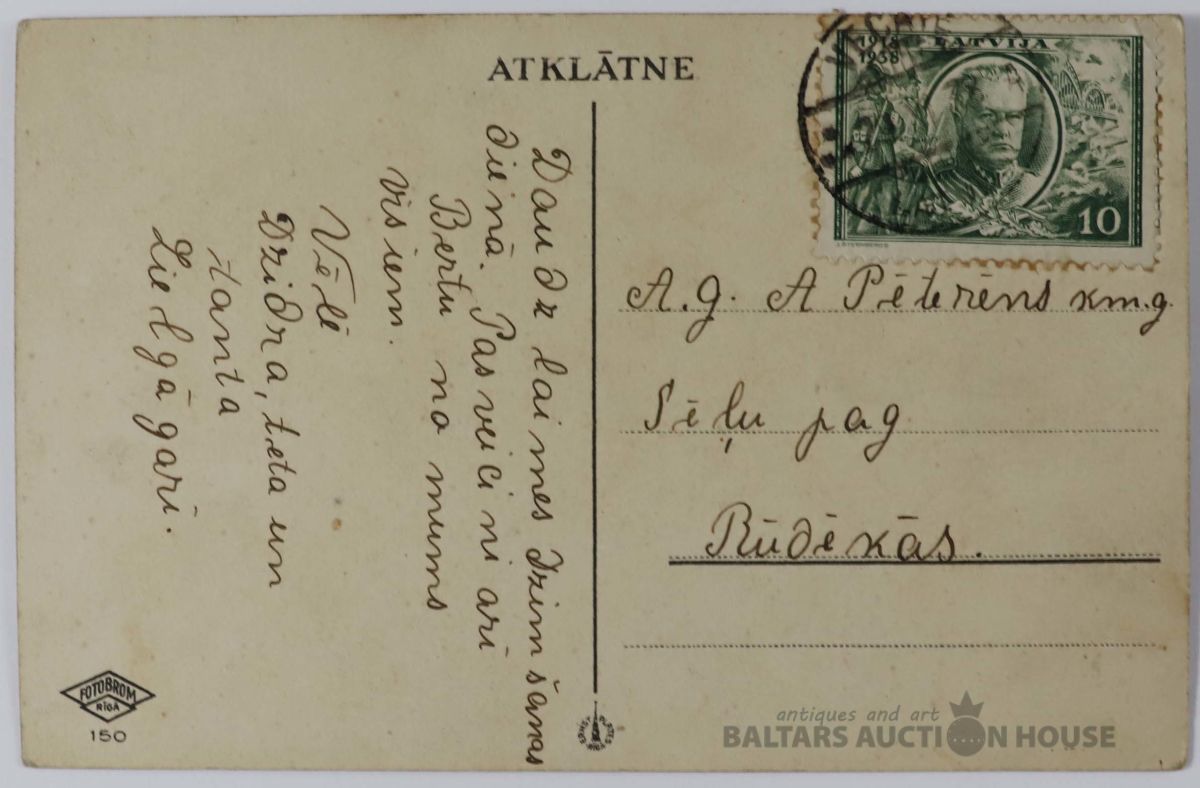 ATKLĀTNE
1918
1938
LATVIJA
10
Daudz laimes dzimšanas
dienā. Pasveicini arī
Bertu no mums
visiem.
Vēlē
Dzidra, teta un
tanta
Lielgāgari.
A.g. A Pētersns km.g.
Sēļu pag
Rūdēkās.
FOTOBROM
RĪGĀ
150
antiques and art
BALTARS AUCTION HOUSE